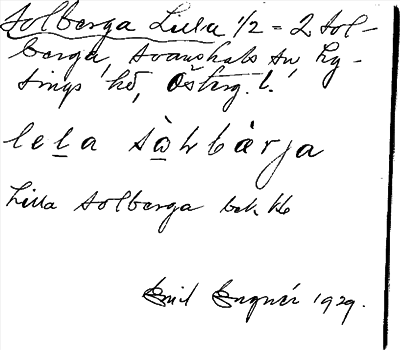 Solberga Lilla 1/2 = 2 Sol-
berga, Svanshals sn, Ly-
sings hd, Österg. l.
lel̲a sὼḷbàrja
Lilla Solberga bok. hb
Emil Engnér 1929.